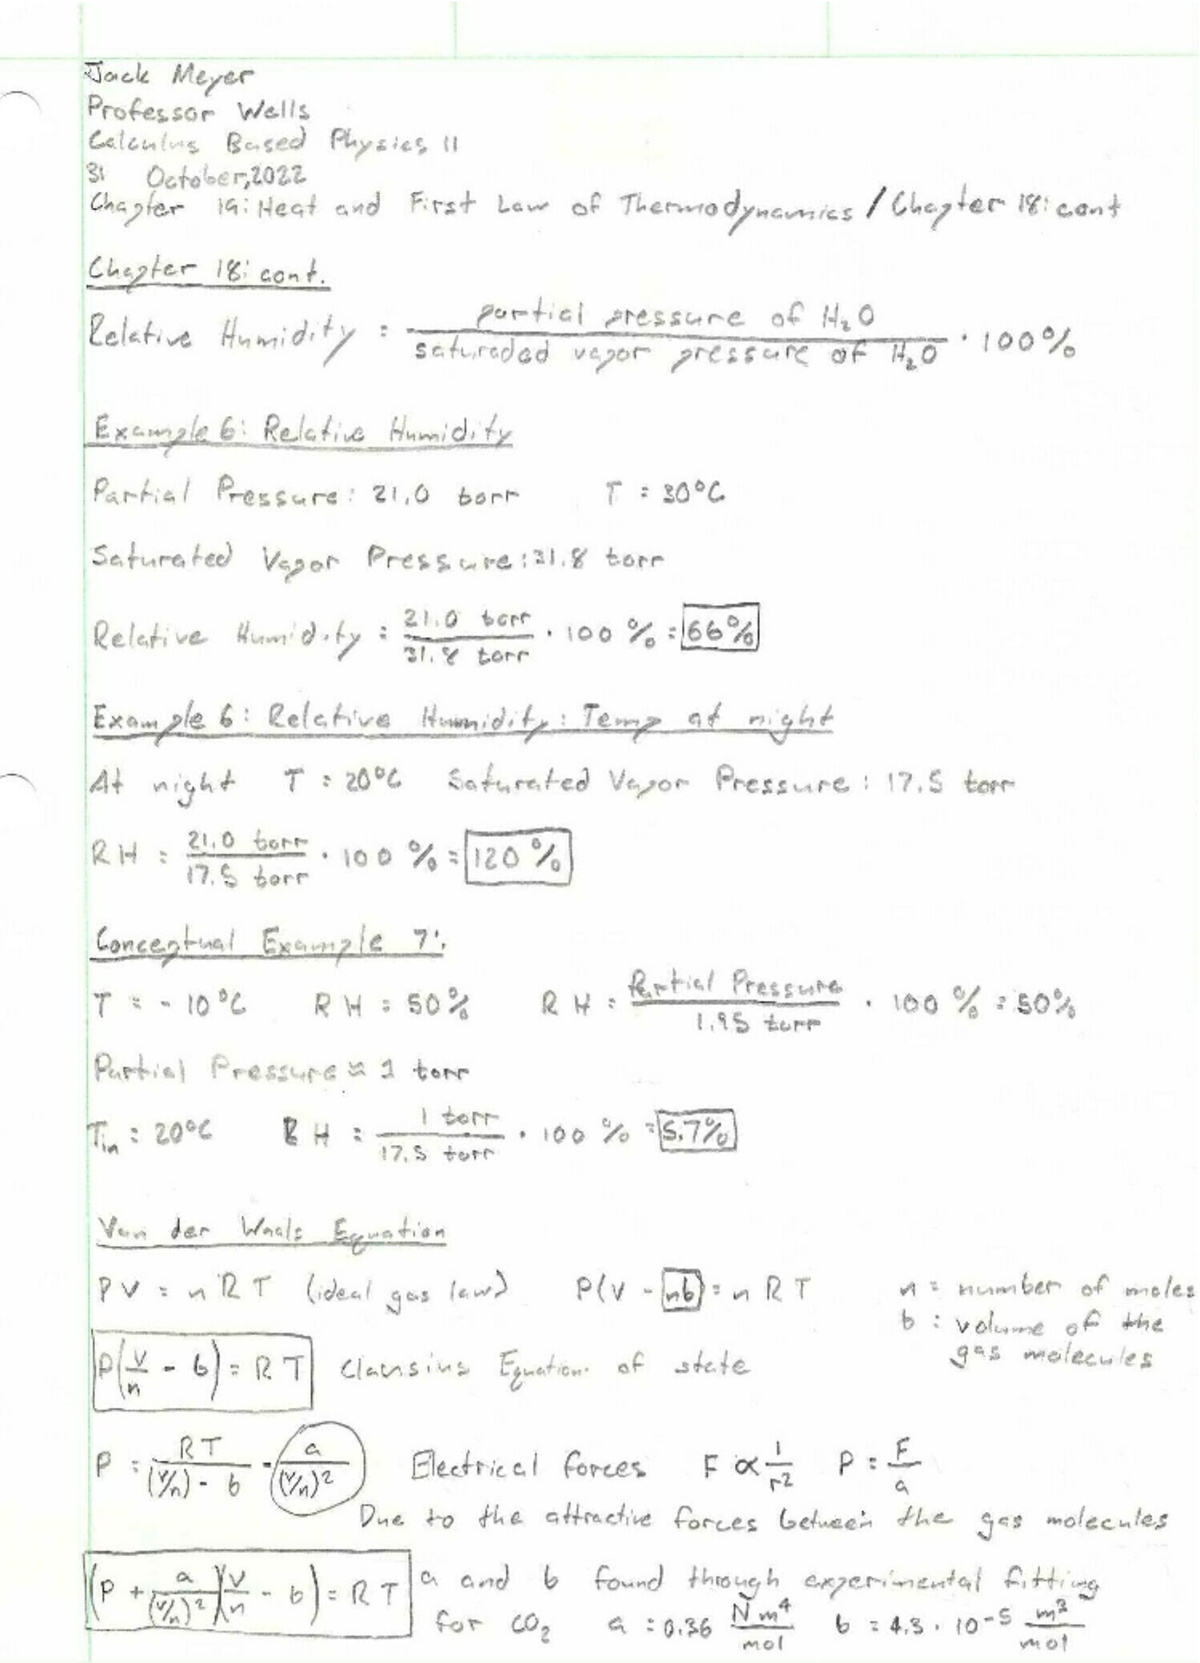 Jack Meyer
Professor Wells
Calculus Based Physics II
31 October, 2022
Chapter 19: Heat and First Law of Thermodynamics / Chapter 18: cont
Chapter 18: cont.
Relative Humidity = partial pressure of H₂O / saturaded vapor pressure of H₂O · 100%
Example 6: Relative Humidity
Partial Pressure: 21.0 torr T = 30°C
Saturated Vapor Pressure: 31.8 torr
Relative Humidity = 21.0 torr / 31.8 torr · 100 % = 66%
Example 6: Relative Humidity: Temp at night
At night T = 20°C Saturated Vapor Pressure: 17.5 torr
RH = 21.0 torr / 17.5 torr · 100 % = 120 %
Conceptual Example 7:
T = -10°C RH = 50% RH = Partial Pressure / 1.95 torr · 100 % = 50%
Partial Pressure ≈ 1 torr
Tᵢₙ = 20°C RH = 1 torr / 17.5 torr · 100 % = 5.7%
Van der Waals Equation
PV = nRT (ideal gas law) P(V - nb) = nRT n = number of moles
b = volume of the
gas molecules
P(V/n - b) = RT Clausius Equation of state
P = RT / ((V/n) - b) - a / (V/n)² Electrical forces F ∝ 1/r² P = F/a
Due to the attractive forces between the gas molecules
(P + a/(V/n)²)(V/n - b) = RT a and b found through experimental fitting
for CO₂ a = 0.36 N m⁴/mol b = 4.3 · 10⁻⁵ m³/mol